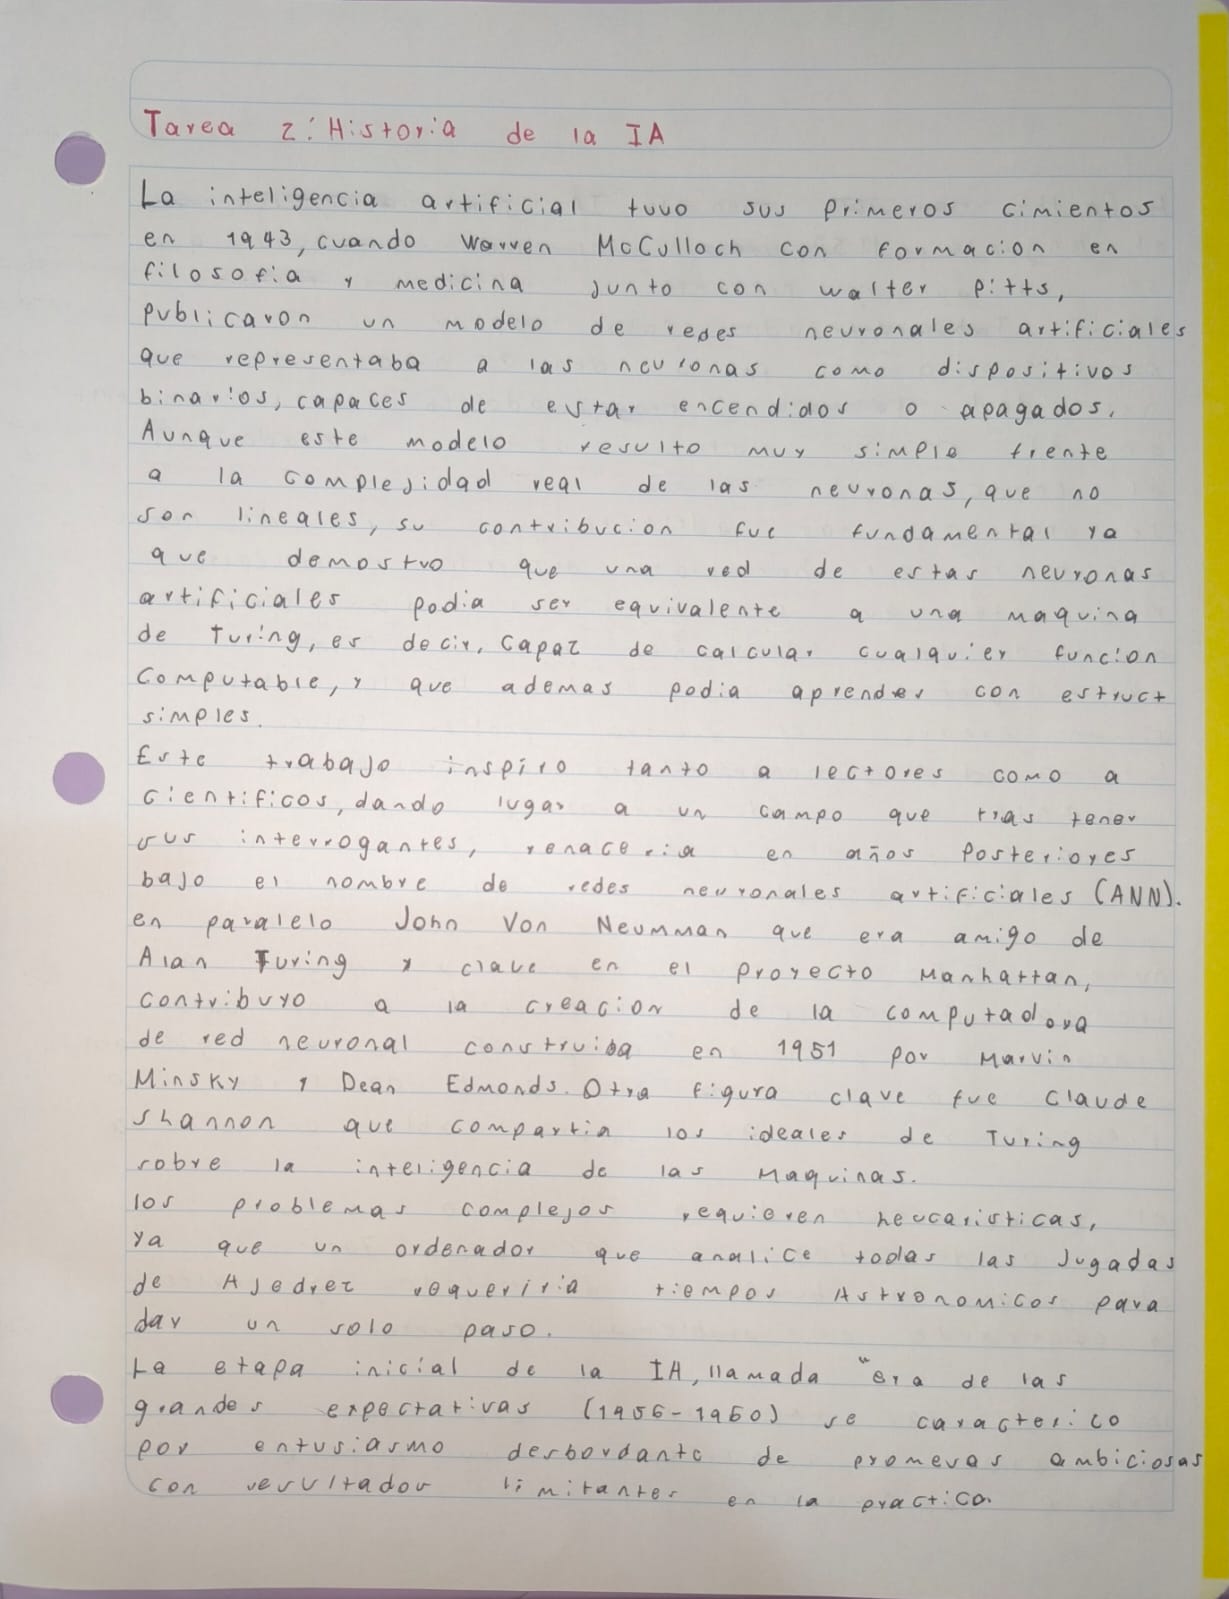 Tarea 2: Historia de la IA
La inteligencia artificial tuvo sus primeros cimientos
en 1943, cuando Warren McCulloch con formacion en
filosofia y medicina junto con walter Pitts,
publicaron un modelo de redes neuronales artificiales
que representaba a las neuronas como dispositivos
binarios, capaces de estar encendidos o apagados.
Aunque este modelo resulto muy simple frente
a la complejidad real de las neuronas, que no
son lineales, su contribucion fue fundamental ya
que demostro que una red de estas neuronas
artificiales podia ser equivalente a una maquina
de Turing, es decir, capaz de calcular cualquier funcion
Computable, y que ademas podia aprender con estruct
simples.
Este trabajo inspiro tanto a lectores como a
cientificos, dando lugar a un campo que tras tener
sus interrogantes, renaceria en años posteriores
bajo el nombre de redes neuronales artificiales (ANN).
en paralelo John Von Neumman que era amigo de
Alan Turing y clave en el proyecto Manhattan,
contribuyo a la creacion de la computadora
de red neuronal construida en 1951 por Marvin
Minsky y Dean Edmonds. Otra figura clave fue Claude
Shannon que compartia los ideales de Turing
sobre la inteligencia de las Maquinas.
los problemas complejos requieren heucaristicas,
ya que un ordenador que analice todas las Jugadas
de Ajedrez requeriria tiempos Astronomicos para
dar un solo paso.
La etapa inicial de la IA, llamada "era de las
grandes expectativas (1956-1960) se caracterico
por entusiasmo desbordante de promevas ambiciosas
con resultados limitantes en la practica.